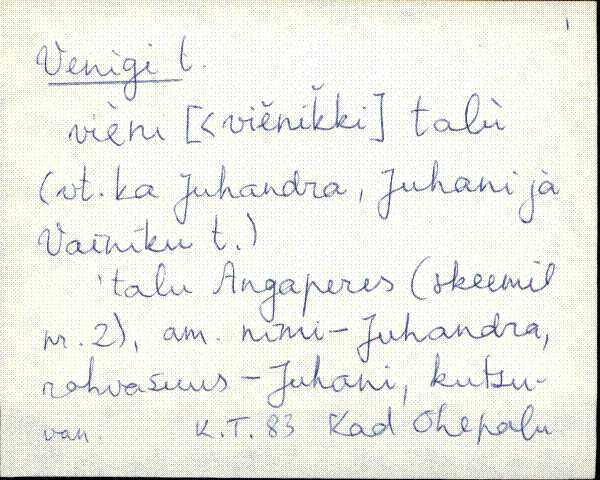 1
Venigi t.
vièni [< viěnik̆ki] talù
(vt. ka Juhandra, Juhani ja
Vainiku t.)
'talu Angaperes (skeemil
nr. 2), am. nimi – Juhandra,
rahvasuus – Juhani, kutsu-
van. K.T. 83 Kad Ohepalu